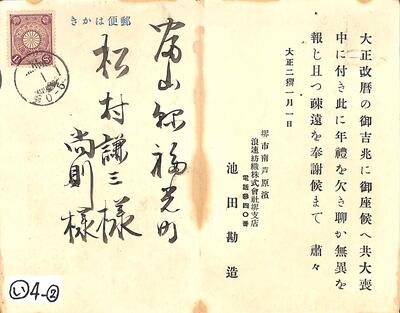 大正改曆の御吉兆に御座候へ共大喪
中に付き此に年禮を欠き聊か無異を
報じ且つ疎遠を奉謝候まで 肅々
大正二年一月一日
堺市南芦原濱
浪速紡織株式會社堺支店
電話參四〇番
池田勘造
郵便はかき
富山縣福光町
松村謙三様
尚則様
い4-②